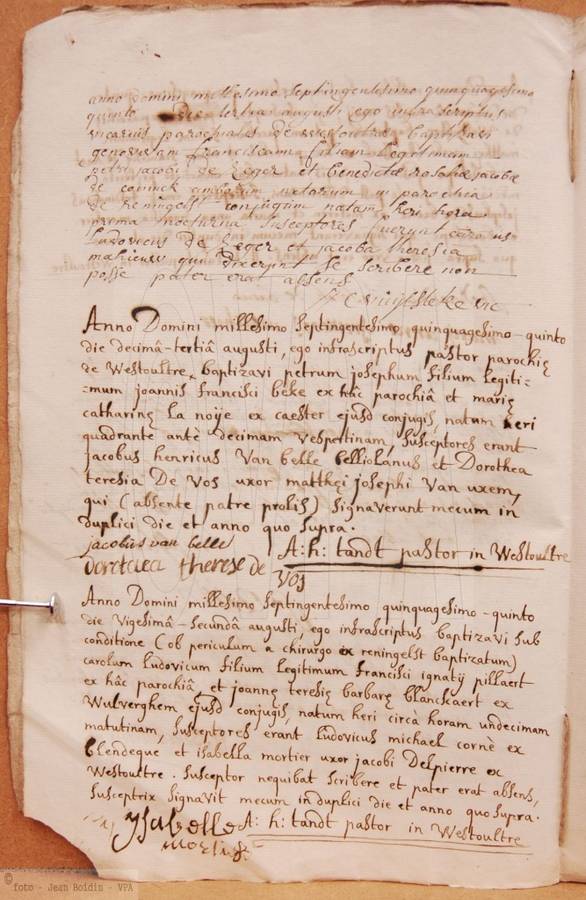 anno domini millesimo septingentesimo quinquagesimo
quinto die tertia augusti ego infrascriptus
vicarius parochialis de westoutre baptizavi
genovevam franciscam filiam legitimam
petri jacobi de Zeger et benedictæ rosaliæ jacobæ
de coninck amborum natorum in parochia
de heningelst conjugum natam heri hora
prima nocturna susceptores fuerunt carolus
Ludovicus de Zeger et jacoba theresia
mahieu qui dixerunt se scribere non
posse pater erat absens
vic
Anno Domini millesimo septingentesimo quinquagesimo-quinto
die decimâ-tertiâ augusti, ego infrascriptus pastor parochiæ
de Westoultre baptizavi petrum josephum filium legiti=
=mum joannis francisci beke ex hâc parochiâ et mariæ
catharinæ La noije ex caester ejusd conjugis, natum heri
quadrante antè decimam vespertinam, susceptores erant
jacobus henricus Van belle belliolanus et Dorothea
teresia De Vos uxor matthei josephi Van uxem,
qui (absente patre prolis) signaverunt mecum in
duplici die et anno quo supra.
jacobus van belle A: h: tandt pastor in Westoultre
dorotaea therese de
vos
Anno Domini millesimo septingentesimo quinquagesimo-quinto
die Vigesimâ-secundâ augusti, ego infrascriptus baptizavi sub
conditione (ob periculum a chirurgo ex reningelst baptizatum)
carolum ludovicum filium legitimum francisci ignatij pillaert
ex hâc parochiâ et joannæ teresiæ barbaræ blanckaert ex
Wulverghem ejusd conjugis, natum heri circà horam undecimam
matutinam, susceptores erant Ludovicus michael cornè ex
blendeque et isabella mortier uxor jacobi Delpierre ex
Westoultre. susceptor nequibat scribere et pater erat absens,
susceptrix signavit mecum in duplici die et anno quo supra.
Ysabelle A: h: tandt pastor in Westoultre
© foto - Jean Boidin - VPA